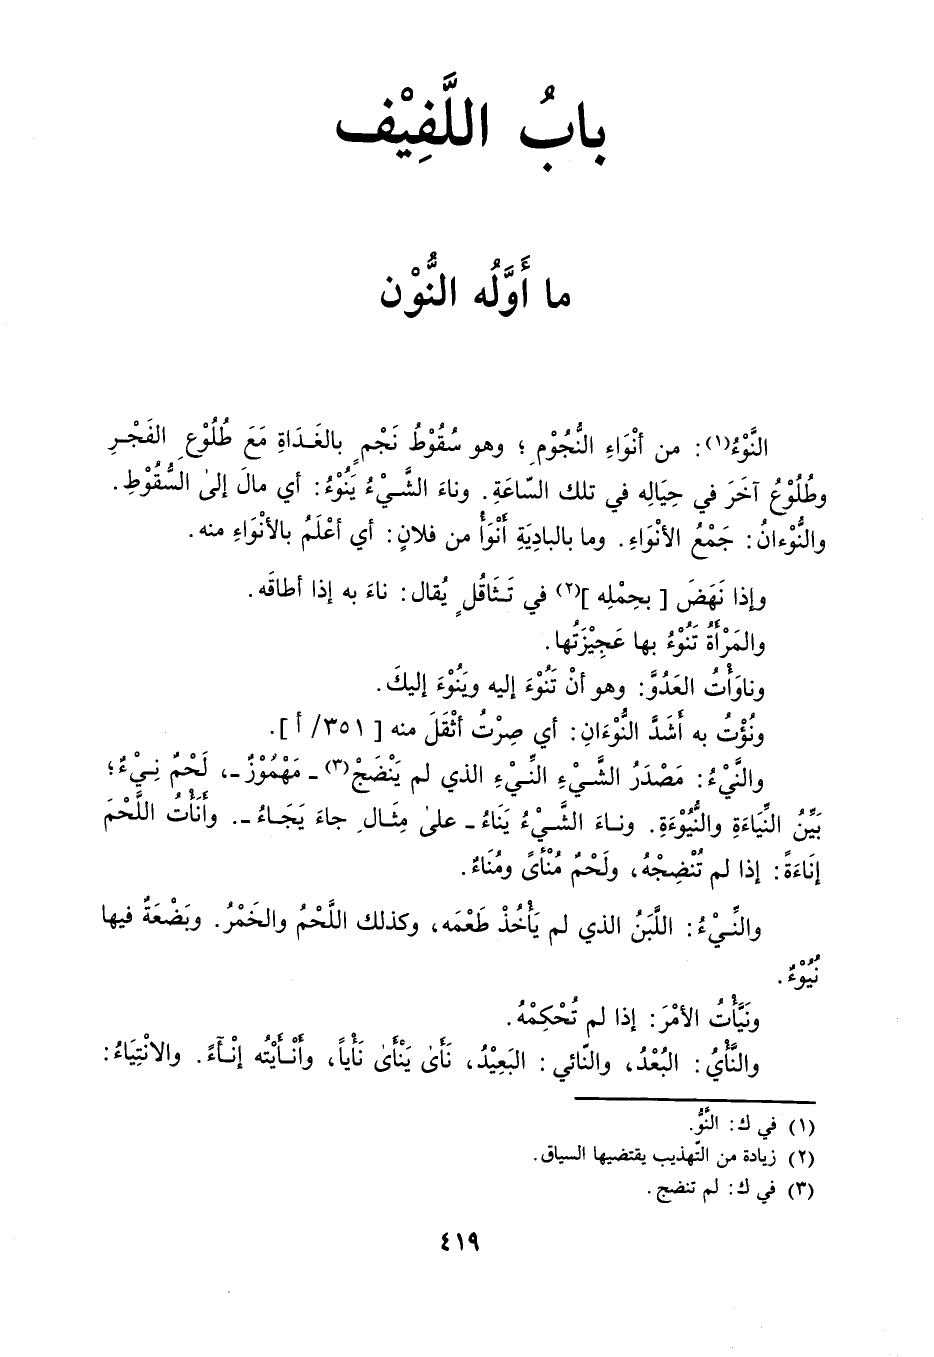 بابُ اللَّفِيْف
ما أَوَّلُه النُّوْن
النَّوْءُ(١): من أنْوَاءِ النُّجُوْمِ؛ وهو سُقُوْطُ نَجْمٍ بالغَدَاةِ مَعَ طُلُوْعِ الفَجْرِ
وطُلُوْعُ آخَرَ في حِيَالِه في تلك السّاعَةِ. وناءَ الشَّيْءُ يَنُوْءُ: أي مالَ إلىٰ السُّقُوْطِ.
والنُّوْءانُ: جَمْعُ الأنْوَاءِ. وما بالبادِيَةِ أَنْوَأُ من فلانٍ: أي أعْلَمُ بالأنْوَاءِ منه.
وإذا نَهَضَ [بحِمْلِه](٢) في تَثَاقُلٍ يُقال: ناءَ به إذا أطاقَه.
والمَرْأَةُ تَنُوْءُ بها عَجِيْزَتُها.
وناوَأْتُ العَدُوَّ: وهو أنْ تَنُوْءَ إليه ويَنُوْءَ إليكَ.
ونُؤْتُ به أَشَدَّ النُّوْءَانِ: أي صِرْتُ أثْقَلَ منه [٣٥١/ أ].
والنَّيْءُ: مَصْدَرُ الشَّيْءِ النِّيْءِ الذي لم يَنْضَجْ(٣) ـ مَهْمُوْزٌ ـ، لَحْمٌ نِيْءٌ؛
بَيِّنُ النِّيَاءَةِ والنُّيُوْءَةِ. وناءَ الشَّيْءُ يَنَاءُ ـ علىٰ مِثَالِ جاءَ يَجَاءُ ـ. وأَنَأْتُ اللَّحْمَ
إنَاءَةً: إذا لم تُنْضِجْهُ، ولَحْمٌ مُنْأىً ومُنَاءٌ.
والنِّيْءُ: اللَّبَنُ الذي لم يَأْخُذْ طَعْمَه، وكذلك اللَّحْمُ والخَمْرُ. وبَضْعَةٌ فيها
نُيُوْءٌ.
ونَيَّأْتُ الأمْرَ: إذا لم تُحْكِمْهُ.
والنَّأْيُ: البُعْدُ، والنّائي: البَعِيْدُ، نَأىٰ يَنْأىٰ نَأْياً، وأَنْأَيْتُه إنْآءً. والانْتِيَاءُ:
(١) في ك: النَّوُّ.
(٢) زيادة من التّهذيب يقتضيها السياق.
(٣) في ك: لم تنضج.
٤١٩